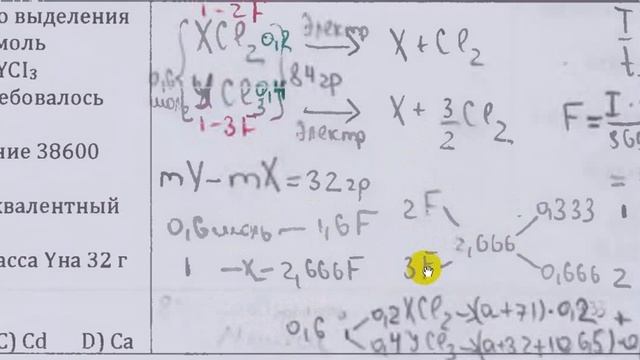 о выделения
моль
YCl₃
ебовалось
ние 38600
квалентный
асса Yна 32 г
C) Cd D) Ca
1-2F
XCl₂ 0,2 Электр X + Cl₂
0,6 моль 84гр
YCl₃ 0,4 Электр X + 3/2 Cl₂
1-3F
I
t
F = I ·
mY - mX = 32 гр
0,6 моль - 1,6F
1 - x - 2,666F
2F 0,333 1
2,666
3F 0,666 2
0,6 0,2XCl₂ - (a+71)·0,2 +
0,4YCl₃ - (a+32+106,5)